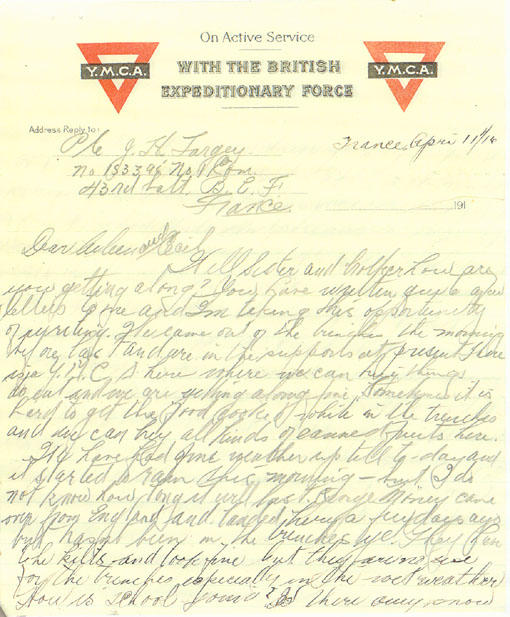 On Active Service
WITH THE BRITISH
EXPEDITIONARY FORCE
Y.M.C.A.
Y.M.C.A.
Address Reply to:
Pte J. H. Fargey
France, April 11th/18
No 153396 No 1 Com.
43rd Batt. B. E. F
France.
191
Dear and Cecil
Well Sister and brother how are
you getting along? You have written quite a few
letters to me and I'm taking this opportunity
of writing. We came out of the trenches the morning
before last and are in the supports at present There
is a Y.M.C.A here where we can buy things
to eat and we are getting along fine, sometimes it is
hard to get the food cooked while in the trenches
and we can buy all kinds of canned fruits here.
We have had fine weather up till to-day and
it started to rain this morning - but I do
not know how long it will last. Money came
over from England and landed here a few days ago
but hasn't been in the trenches yet. They
the kilts and look fine but they are no use
for the trenches especially in the wet weather
How is school going? Is there any snow